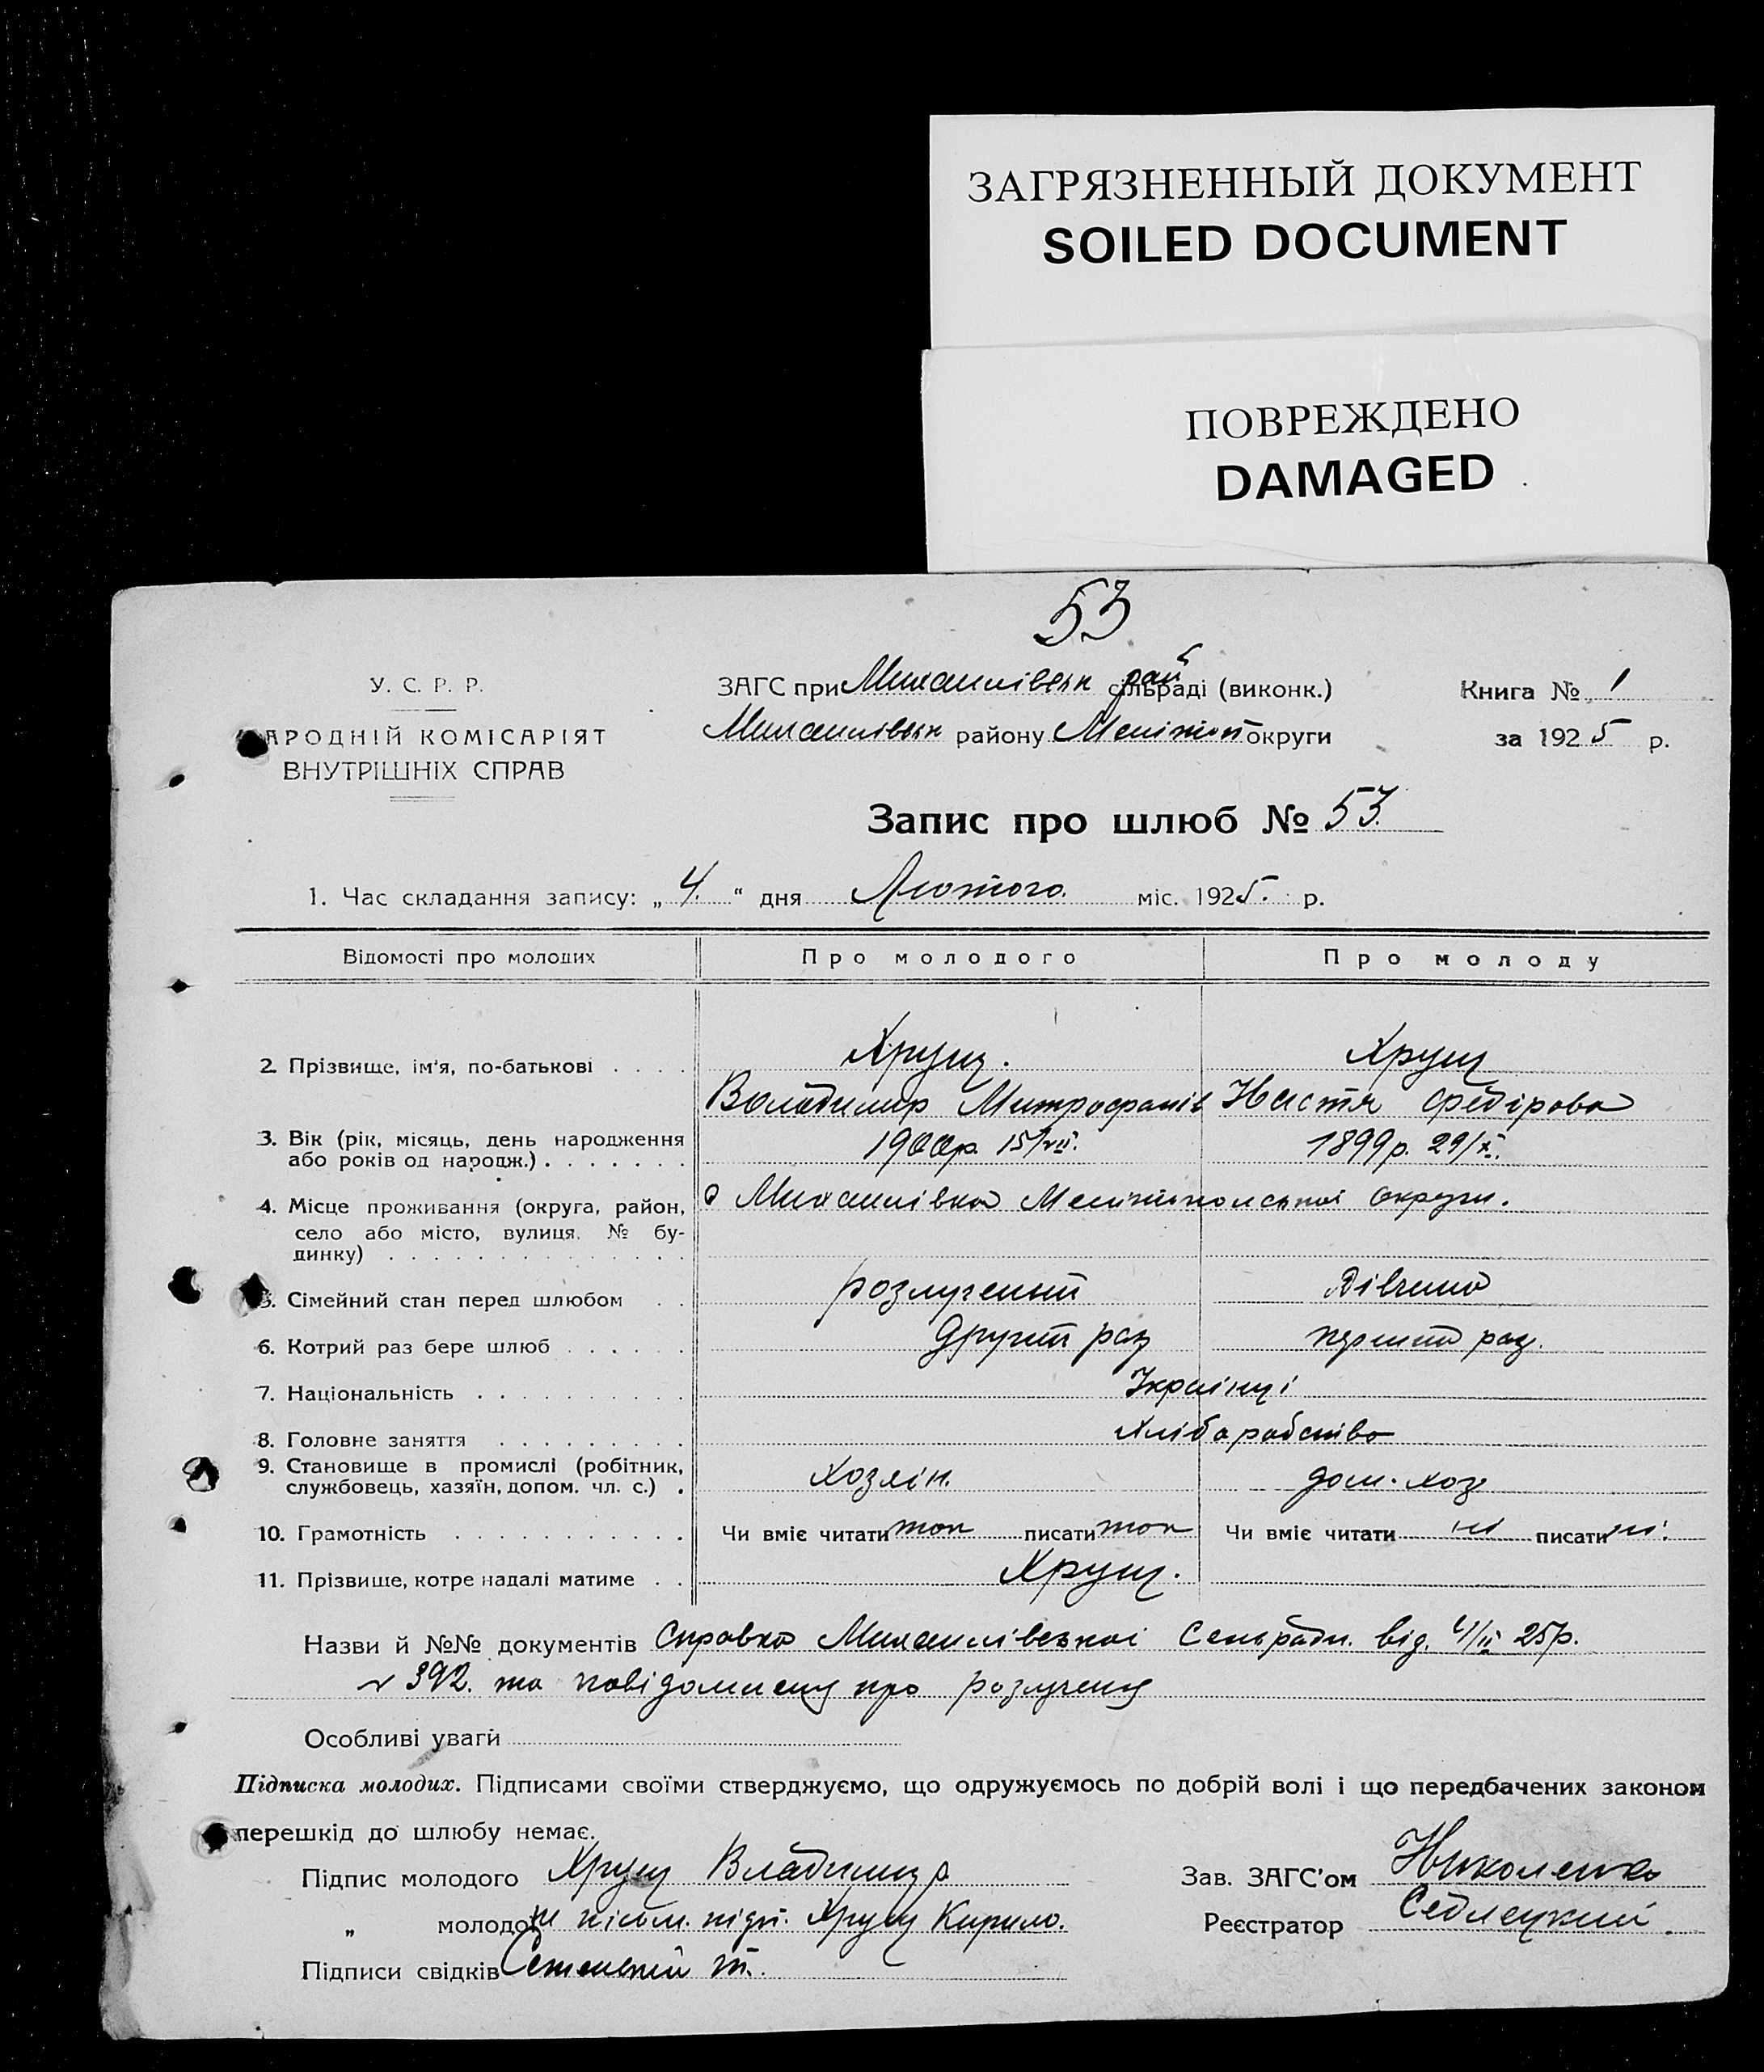 ЗАГРЯЗНЕННЫЙ ДОКУМЕНТ
SOILED DOCUMENT
ПОВРЕЖДЕНО
DAMAGED
53
У. С. Р. Р.
АРОДНІЙ КОМІСАРІЯТ
ВНУТРІШНІХ СПРАВ
ЗАГС при Михайлівськ рай сільраді (виконк.)
Михайлівськ району Мелітоп округи
Книга № 1
за 1925 р.
Запис про шлюб № 53.
1. Час складання запису: „ 4. “ дня Лютого. міс. 1925. р.
Відомості про молодих Про молодого Про молоду
2. Прізвище, ім'я, по-батькові Хрущ. Хрущ
Володимир Митрофанів Настя Федірова
3. Вік (рік, місяць, день народження або років од народж.) 1900р. 15/VII. 1899р. 29/X.
4. Місце проживання (округа, район, село або місто, вулиця. № будинку) с Михайлівка Мелітопольської округи.
5. Сімейний стан перед шлюбом розлучений Дівчина
6. Котрий раз бере шлюб Другий раз перший раз.
7. Національність Українці
8. Головне заняття хліборобство
9. Становище в промислі (робітник, службовець, хазяїн, допом. чл. с.) Хозяін. дом. хоз
10. Грамотність Чи вміє читати так писати так Чи вміє читати ні писати ні.
11. Прізвище, котре надалі матиме Хрущ.
Назви й №№ документів Справка Михайлівської Сельради. від. 4/II 25р.
№ 392. та повідомленя про розлученя
Особливі уваги
Підписка молодих. Підписами своїми стверджуємо, що одружуємось по добрій волі і що передбачених законом
перешкід до шлюбу немає.
Підпис молодого Хрущ Владимир
„ молодої не письм. підп. Хрущ Кирило.
Підписи свідків
Зав. ЗАГС'ом Николенко
Реєстратор Седлецкий